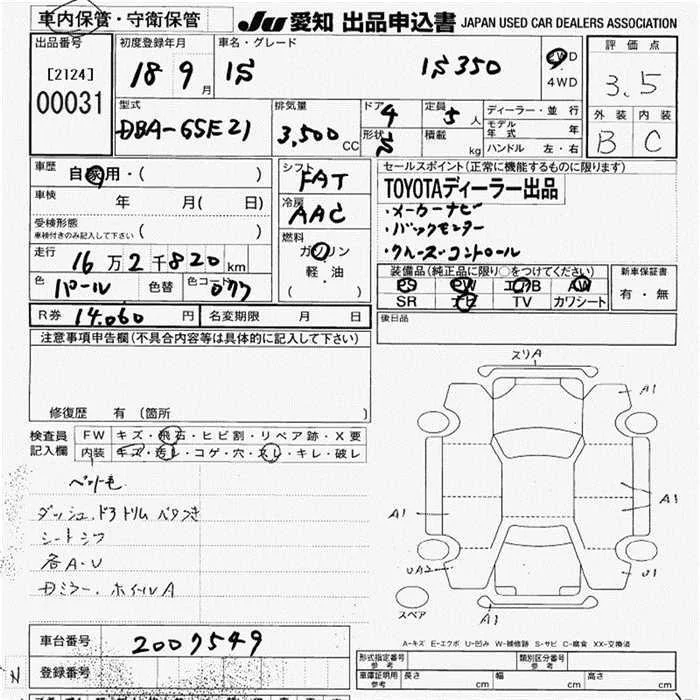 車内保管・守衛保管 JU 愛知 出品申込書 JAPAN USED CAR DEALERS ASSOCIATION
出品番号 初度登録年月 車名・グレード 2WD 評価点
[2124] 18 9月 IS IS350 ・4WD 3.5
00031 型式 排気量 ドア 4 定員 5人 ディーラー・並行 外装 内装
DBA-GSE21 3,500 CC 形状 S 積載 kg モデル年式 年 B C
ハンドル 左・右
車歴 自家用・( ) シフト FAT セールスポイント(正常に機能するものに限ります)
車検 年 月( 日) 冷房 AAC TOYOTAディーラー出品
受検形態 ( ) ・メーカーナビ
車検付きのみ記入して下さい 燃料 ・バックモニター
走行 16万2千820km ガソリン ・クルーズコントロール
軽・油 装備品(純正品に限り○をつけてください) 新車保証書
色 パール 色替 色コード 077 ( ) PS PW エアB AW 有・無
SR ナビ TV カワシート
R券 14,060 円 名変期限 月 日 後日品
注意事項申告欄(不具合内容等は具体的に記入して下さい)
スリA
A1
修復歴 有(箇所 )
検査員 FW キズ・飛石・ヒビ割・リペア跡・X要
記入欄 内装 キズ・汚レ・コゲ・穴・スレ・キレ・破レ
A1
ダッシュ.ドアトリム ベタつき
A1
シートシワ
各A・U
UA2 U1
ミラー.ホイルA
スペア
A1
車台番号 2007549
A-キズ E-エクボ U-凹み W-補修跡 S-サビ C-腐食 XX-交換済
登録番号 形式指定番号 参考 類別区分番号 参考
車庫証明用 参考 長さ cm 幅 cm 高さ cm